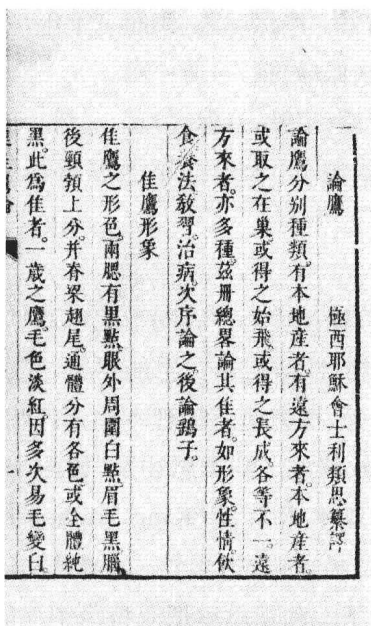 論鷹　極西耶穌會士利類思纂譯
論鷹分別種類有本地產者有遠方來者。本地產者。
或取之在巢或得之始飛或得之長成。各等不一。遠
方來者。亦多種。茲冊總畧論其佳者。如形象。性情飲
食養法教習。治病。次序論之後論鷂子。
佳鷹形象
佳鷹之形色。兩腮有黑點。眼外周圍白點。眉毛黑臁
後頸頷上分。并脊梁趐尾。通體分有各色。或全體純
黑。此為佳者。一歲之鷹。毛色淡紅。因多次易毛變白。